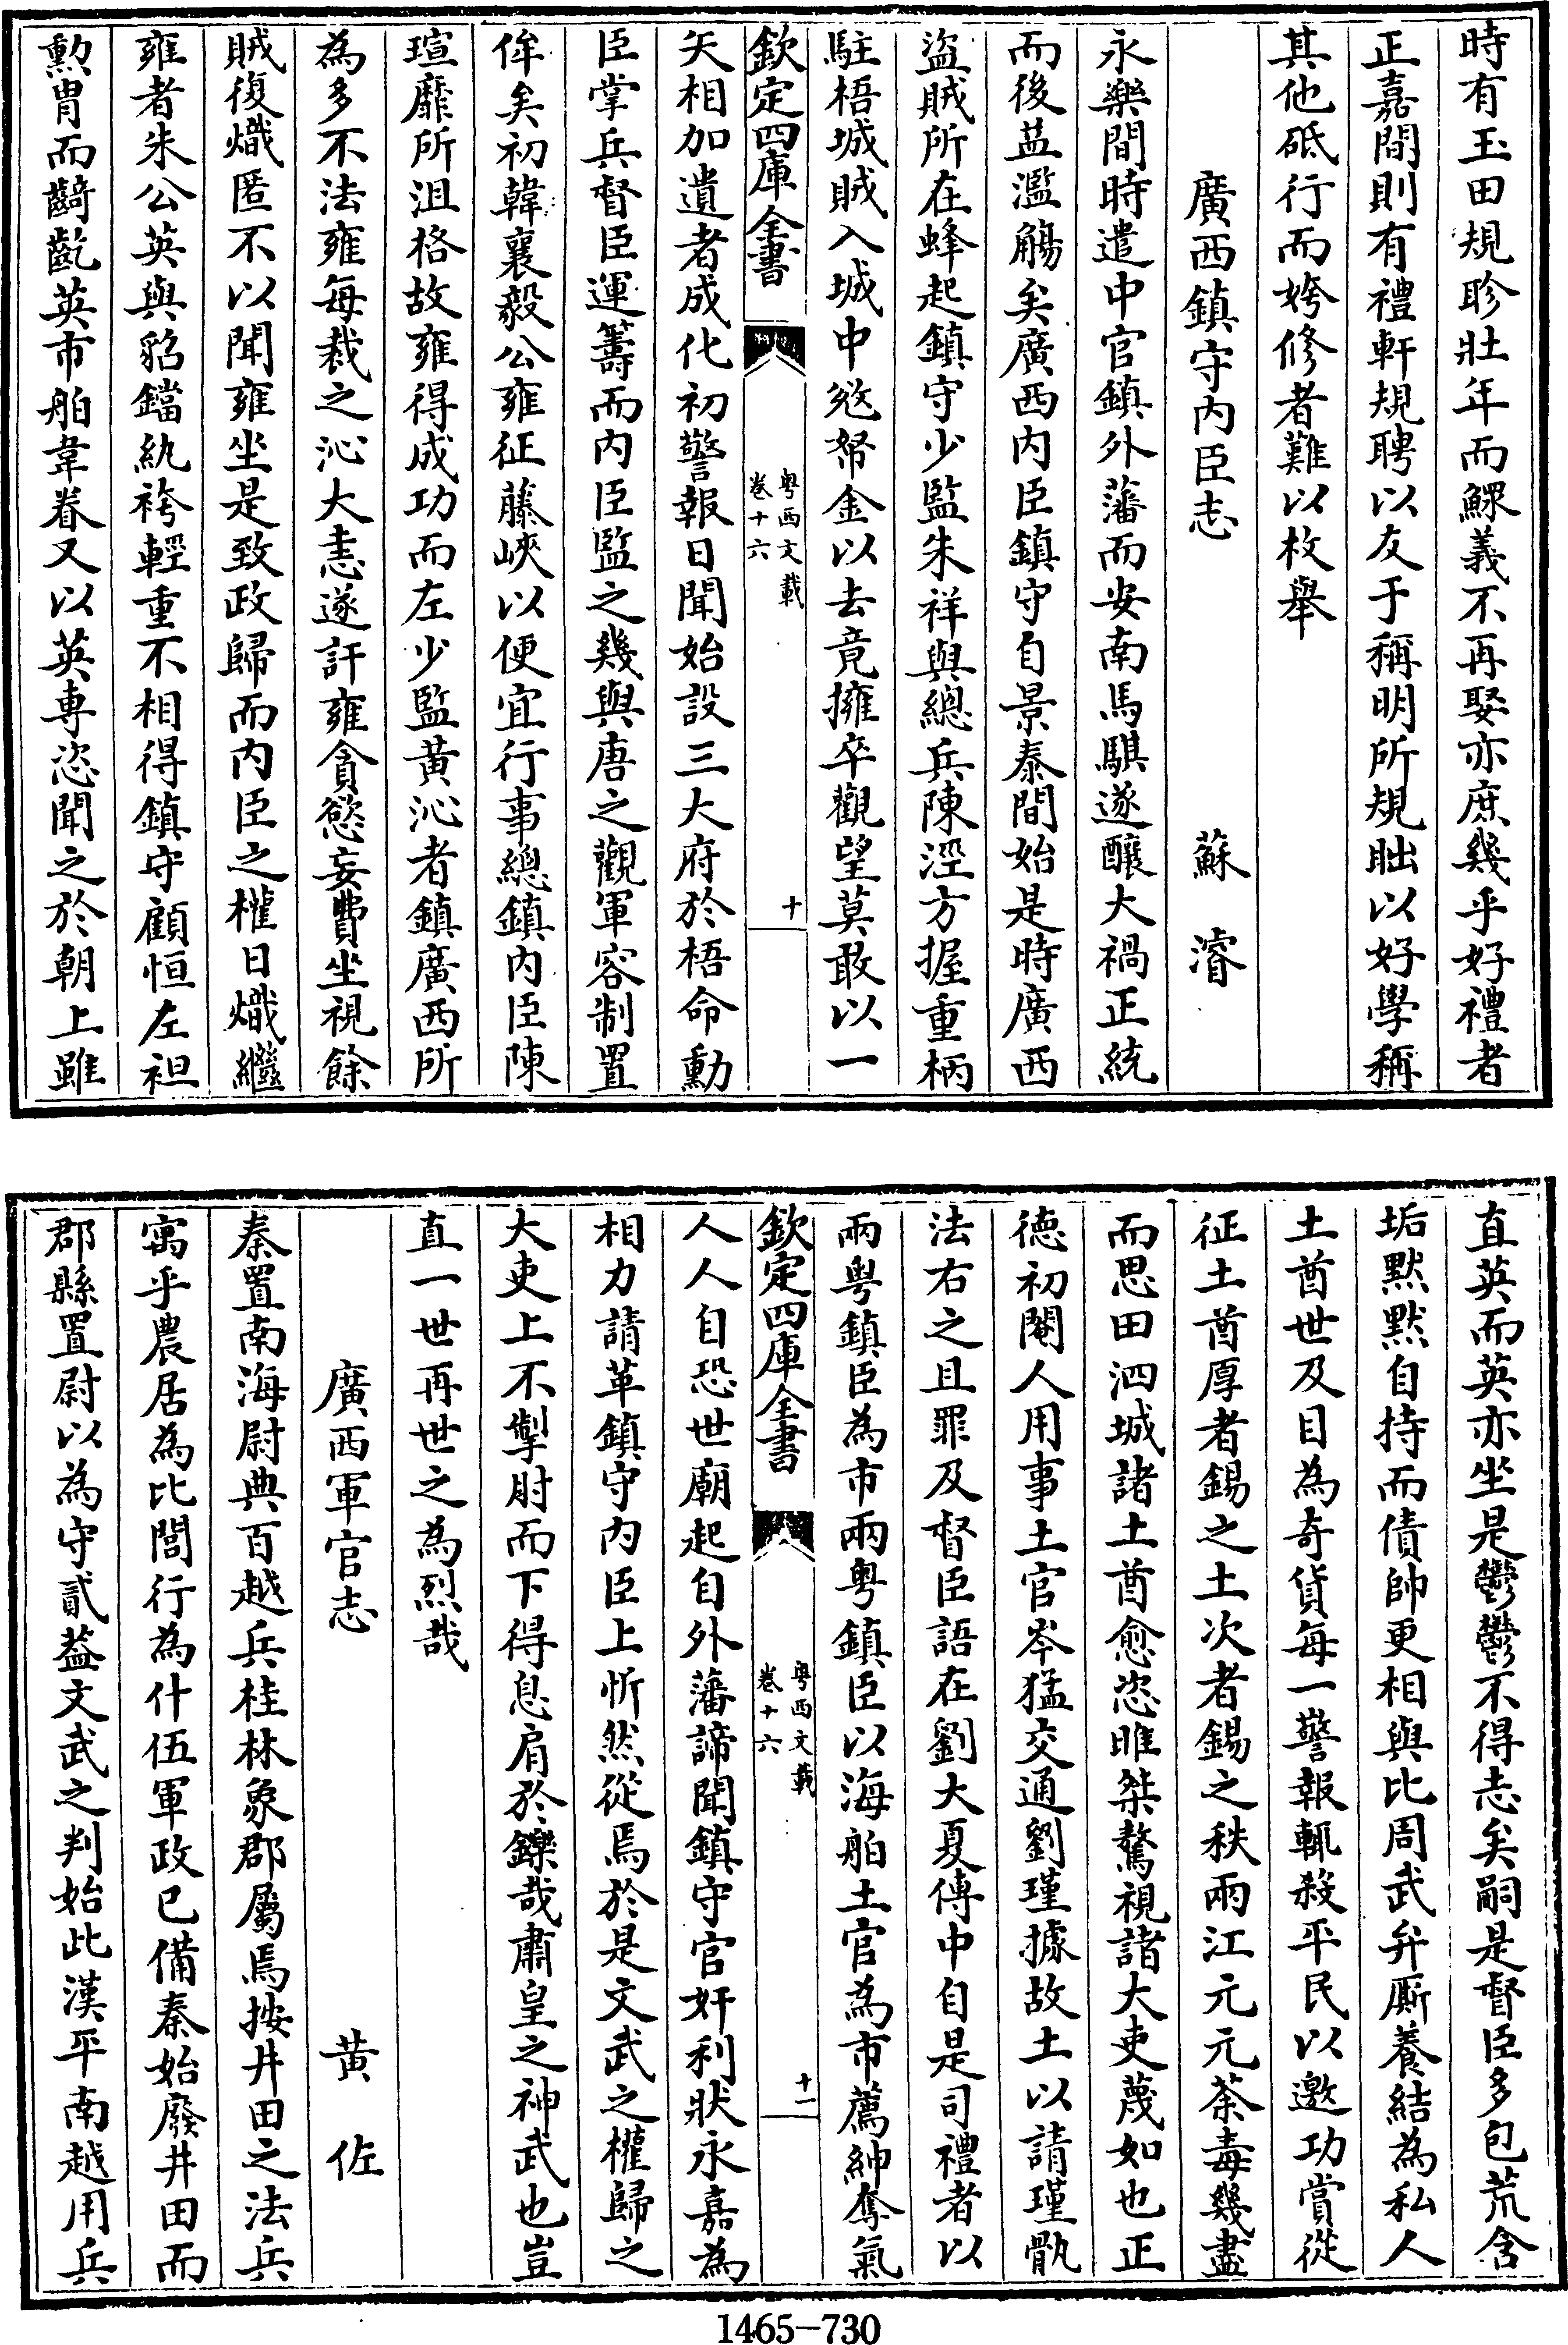 時有玉田規畛壯年而鰥義不再娶亦庶幾乎好禮者
正嘉間則有禮軒規聘以友于稱明所規朏以好學稱
其他砥行而姱修者難以枚舉
廣西鎮守内臣志　蘇濬
永樂間時遣中官鎮外藩而安南馬騏遂釀大禍正統
而後葢濫觴矣廣西内臣鎮守自景泰間始是時廣西
盜賊所在蜂起鎮守少監朱祥與總兵陳涇方握重柄
駐梧城賊入城中縋帑金以去竟擁卒觀望莫敢以一
欽定四庫全書　粤西文載　卷十六　十
矢相加遺者成化初警報日聞始設三大府於梧命勳
臣掌兵督臣運籌而内臣監之幾與唐之觀軍容制置
侔矣初韓襄毅公雍征藤峽以便宜行事總鎮内臣陳
瑄靡所沮格故雍得成功而左少監黄沁者鎮廣西所
為多不法雍每裁之沁大恚遂訐雍貪慾妄費坐視餘
賊復熾匿不以聞雍坐是致政歸而内臣之權日熾繼
雍者朱公英與貂鐺紈袴輕重不相得鎮守顧恒左袒
勲胄而齮齕英市舶韋眷又以英專恣聞之於朝上雖
直英而英亦坐是鬱鬱不得志矣嗣是督臣多包荒含
垢黙黙自持而債帥更相與比周武弁厮養結為私人
土酋世及目為奇貨每一警報輒殺平民以邀功賞從
征土酋厚者錫之土次者錫之秩兩江元元荼毒幾盡
而思田泗城諸土酋愈恣睢桀驁視諸大吏蔑如也正
德初閹人用事土官岑猛交通劉瑾據故土以請瑾骫
法右之且罪及督臣語在劉大夏傳中自是司禮者以
兩粤鎮臣為市兩粤鎮臣以海舶土官為市薦紳奪氣
欽定四庫全書　粤西文載　卷十六　十一
人人自恐世廟起自外藩諦聞鎮守官奸利狀永嘉為
相力請革鎮守内臣上忻然從焉於是文武之權歸之
大吏上不掣肘而下得息肩於鑠哉肅皇之神武也豈
直一世再世之為烈哉
廣西軍官志　黄佐
秦置南海尉典百越兵桂林象郡屬焉按井田之法兵
寓乎農居為比閭行為什伍軍政已備秦始廢井田而
郡縣置尉以為守貳葢文武之判始此漢平南越用兵
1465-730